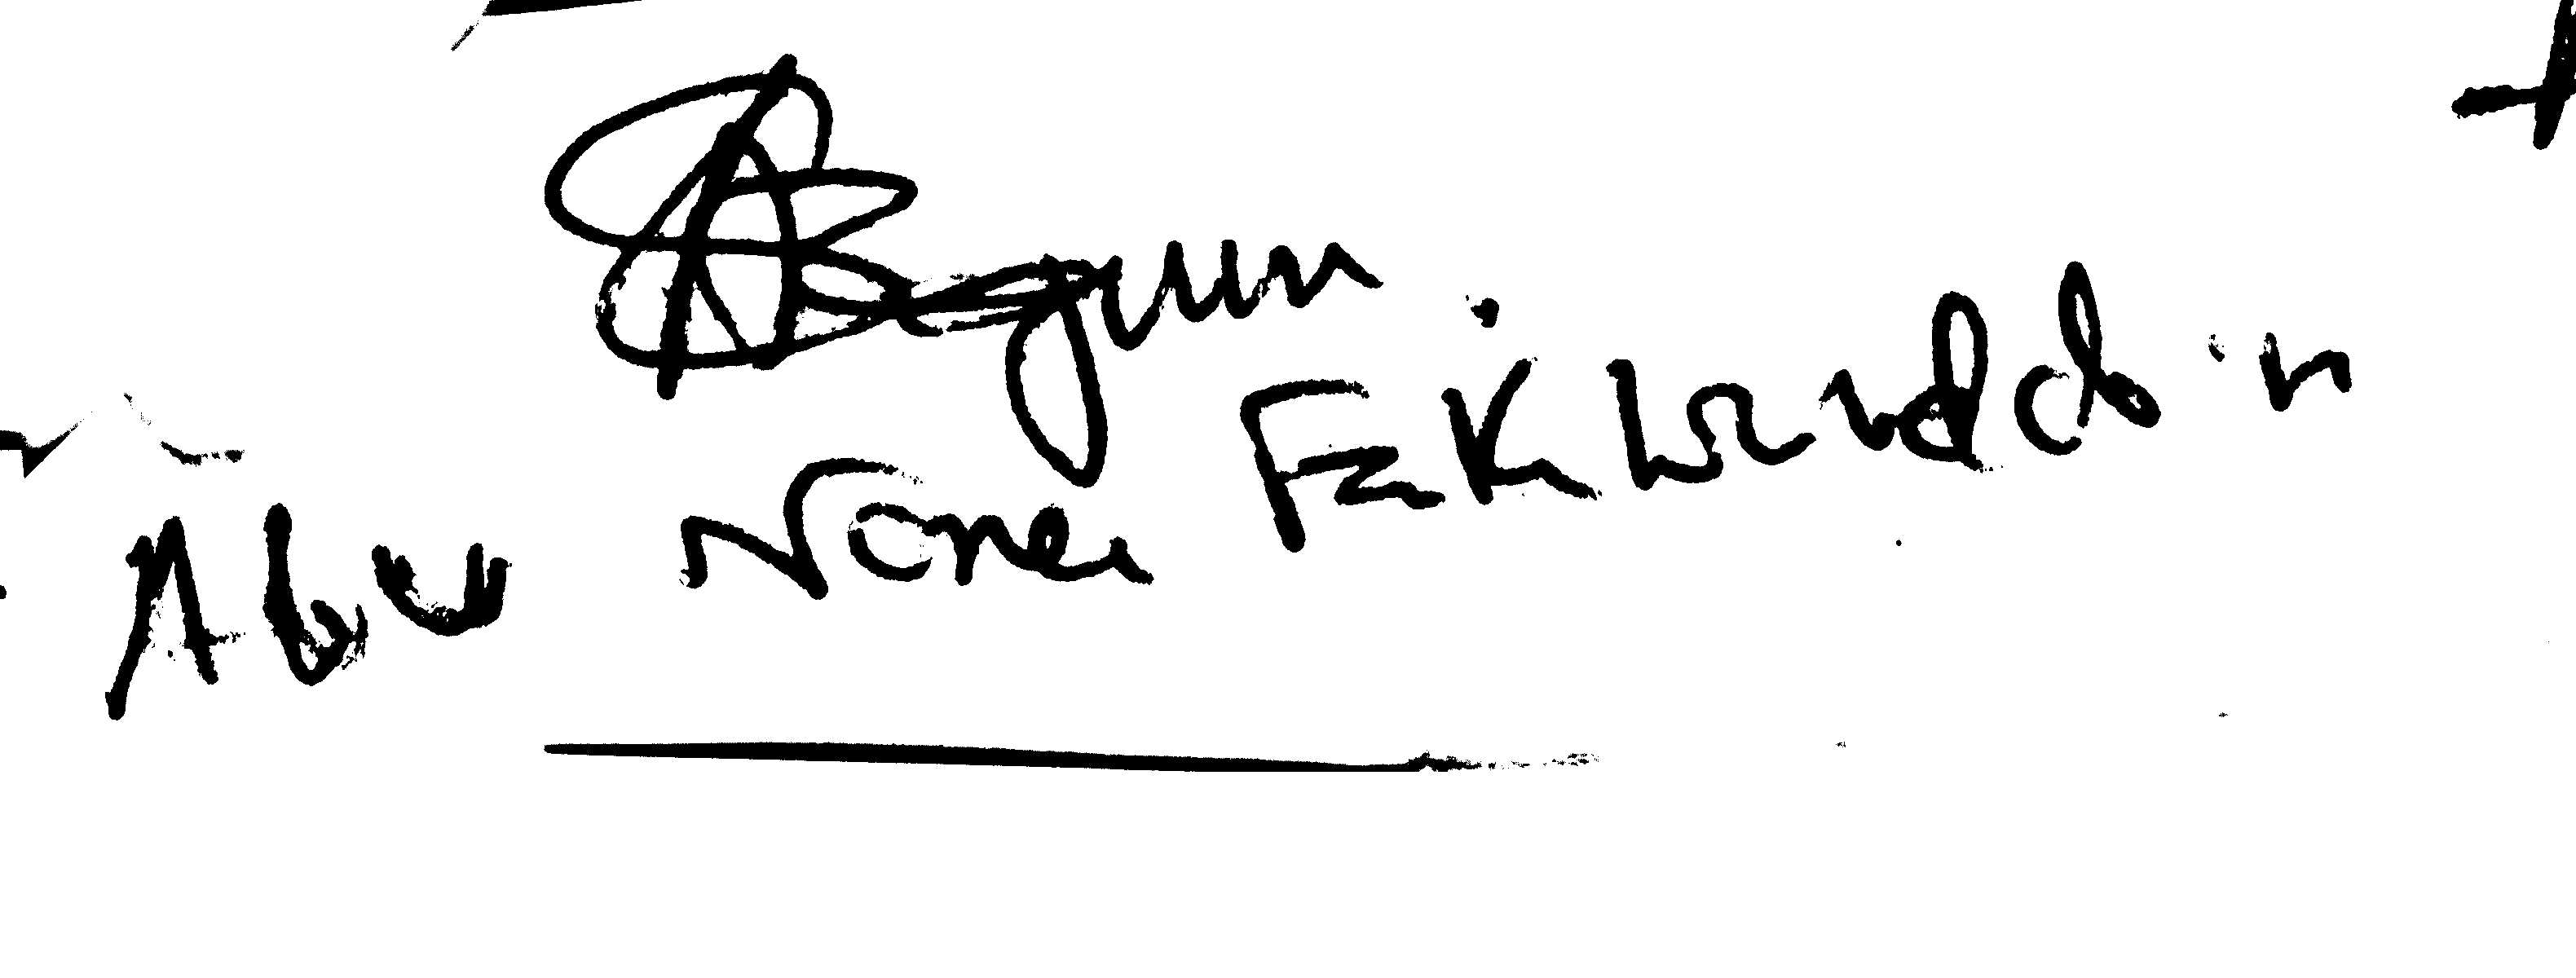 Begum.
Abu Noner Fakhruddin